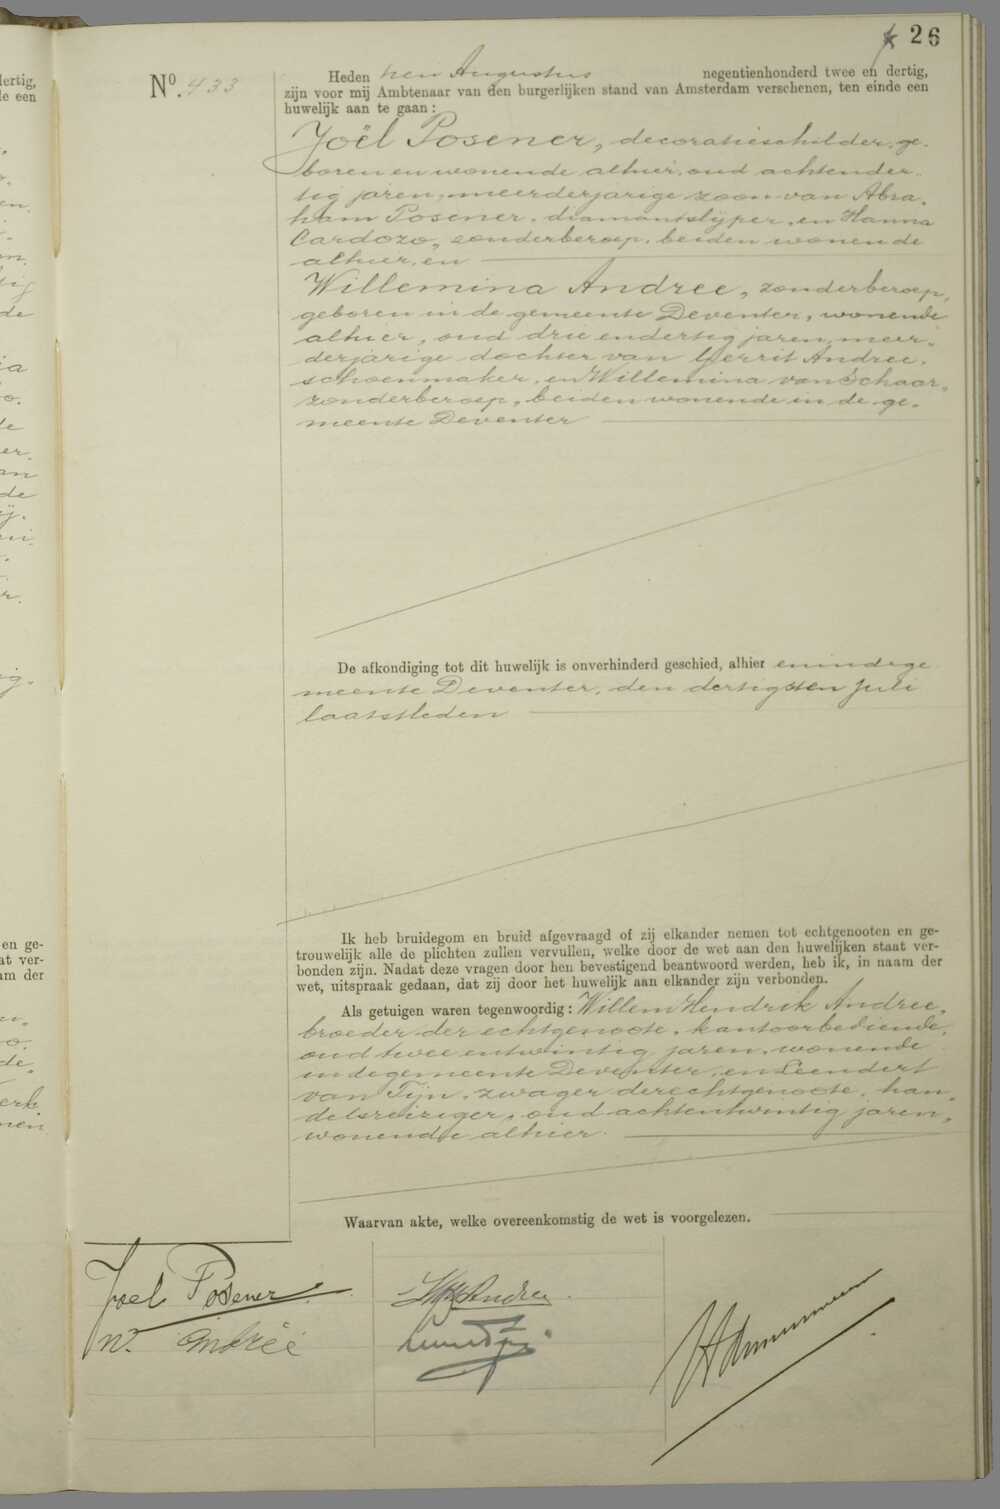 26
Nº. 433
Heden tien Augustus negentienhonderd twee en dertig,
zijn voor mij Ambtenaar van den burgerlijken stand van Amsterdam verschenen, ten einde een
huwelijk aan te gaan:
Yoël Posener, decoratieschilder, ge-
boren en wonende alhier, oud achtender-
tig jaren, meerderjarige zoon van Abra-
ham Posener, diamantslijper, en Hanna
Cardozo, zonder beroep, beiden wonende
alhier, en
Willemina Andree, zonder beroep,
geboren in de gemeente Deventer, wonende
alhier, oud drie en dertig jaren, meer-
derjarige dochter van Gerrit Andree,
schoenmaker, en Willemina van Schaar,
zonder beroep, beiden wonende in de ge-
meente Deventer
De afkondiging tot dit huwelijk is onverhinderd geschied, alhier en in de ge-
meente Deventer, den dertigsten Juli
laatstleden
Ik heb bruidegom en bruid afgevraagd of zij elkander nemen tot echtgenooten en ge-
trouwelijk alle de plichten zullen vervullen, welke door de wet aan den huwelijken staat ver-
bonden zijn. Nadat deze vragen door hen bevestigend beantwoord werden, heb ik, in naam der
wet, uitspraak gedaan, dat zij door het huwelijk aan elkander zijn verbonden.
Als getuigen waren tegenwoordig: Willem Hendrik Andree,
broeder der echtgenoote, kantoorbediende,
oud twee en twintig jaren, wonende
in de gemeente Deventer, en Leendert
van Tijn, zwager der echtgenoote, han-
delsreiziger, oud achtentwintig jaren,
wonende alhier.
Waarvan akte, welke overeenkomstig de wet is voorgelezen.
Joel Posener
W. Andréé
WH Andree